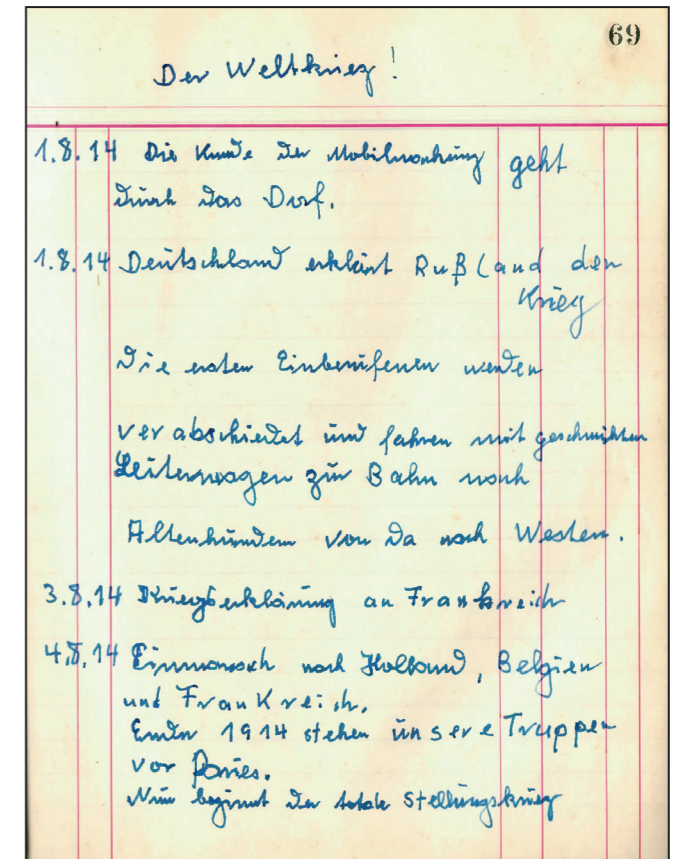 69
Der Weltkrieg!
1.8.14 Die Kunde der Mobilmachung geht
durch das Dorf.
1.8.14 Deutschland erklärt Rußland den
Krieg
Die ersten Einberufenen werden
verabschiedet und fahren mit geschmückten
Leiterwagen zur Bahn nach
Altenhundem von da nach Westen.
3.8.14 Kriegserklärung an Frankreich
4.8.14 Einmarsch nach Holland, Belgien
und Frankreich.
Ende 1914 stehen unsere Truppen
vor Paries.
Nun beginnt der totale Stellungskrieg